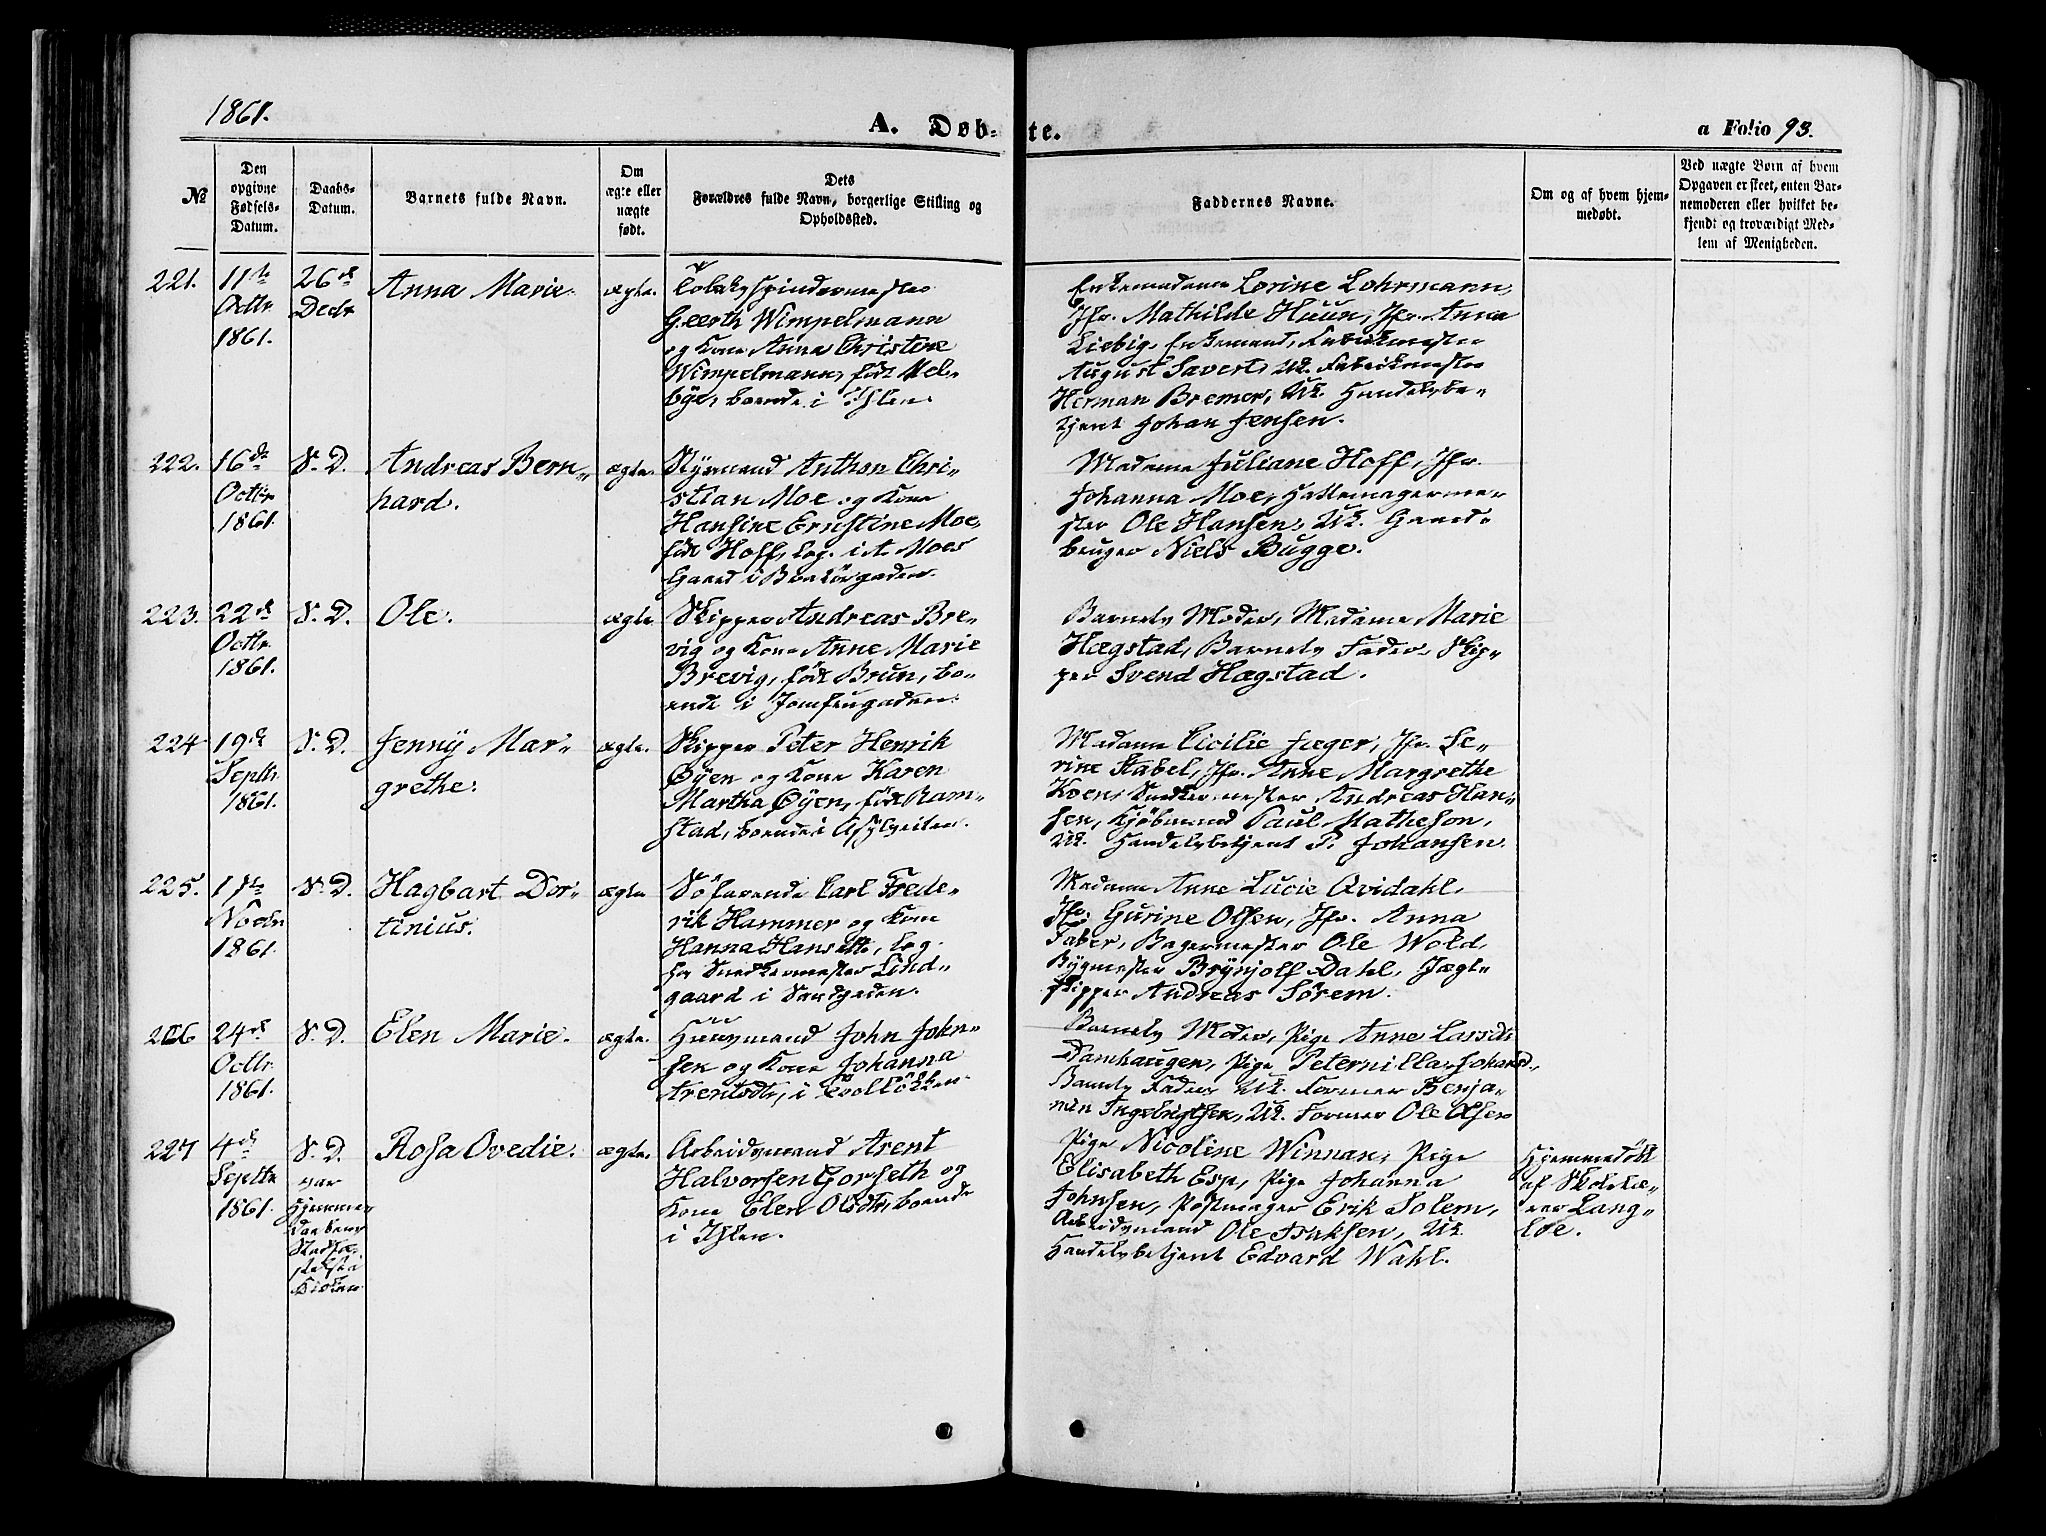 1861.
A. Døb-
te.
a Folio 93.
№
Den
opgivne
Fødsels-
Datum.
Daabs-
Datum.
Barnets fulde Navn.
Om
ægte eller
uægte
født.
Dets
Forældres fulde Navn, borgerlige Stilling og
Opholdssted.
Faddernes Navne.
Om og af hvem hjem-
medøbt.
Ved uægte Børn af hvem
Opgaven er skeet, enten Bar-
nemoderen eller hvilket be-
kjendt og troværdigt Med-
lem af Menigheden.
221.
11te
Octbr
1861.
26de
Decbr
Anna Marie.
ægte.
Tobakspindermester
Geerth Wimpelmann
og Kone Anna Christine
Wimpelmann, født Mel-
bye, boende i Ihlen.
Enkemadame Lorine Lohrmann,
Jfr. Mathilde Huun, Jfr. Anna
Liebig, Enkemand, Fabrikmester
August Savert, Uk. Fabrikmester
Herman Bremer, Uk. Handelsbe-
tjent Johan Jensen.
222.
16de
Octbr
1861.
S. D.
Andreas Bern-
hard.
ægte.
Styrmand Anthon Chri-
stian Moe og Kone
Hansine Ernstine Moe,
født Hoff, log. i A. Moes
Gaard i Brattørgaden.
Madame Juliane Hoff, Jfr.
Johanna Moe, Hattemagerme-
ster Ole Hansen, Uk. Gaard-
bruger Niels Bugge.
223.
22de
Octbr
1861.
S. D.
Ole.
ægte.
Skipper Andreas Bre-
vig og Kone Anne Marie
Brevig, født Brun, bo-
ende i Jomfrugaden.
Barnets Moder, Madame Marie
Hægstad, Barnets Fader, Skip-
per Svend Hægstad.
224
19de
Septbr
1861.
S. D.
Jenny Mar-
grethe.
ægte.
Skipper Peter Henrik
Øyen og Kone Karen
Martha Øyen, født Ram-
stad, boende i Asylveiten.
Madame Cicilie Jæger, Jfr. Se-
rine Stabel, Jfr. Anne Margrethe
Koen, Snedkermester Andreas Han-
sen, Kjøbmand Paul Matheson,
Uk. Handelsbetjent P. Johansen.
225.
17te
Novbr
1861.
S. D.
Hagbart Dor-
tinius.
ægte
Søfarende Carl Frede-
rik Hammer og Kone
Hanna Hansdtr, log.
hos Snedkermester Lind-
gaard i Sandgaden.
Madame Anne Lucie Qvidahl,
Jfr. Gurine Olsen, Jfr. Anna
Faber, Bagermester Ole Wold,
Bygmester Brynjolf Dahl, Jægt-
skipper Andreas Sörem.
226
24de
Octbr
1861.
S. D.
Elen Marie.
ægte.
Huusmand John John-
sen og Kone Johanna
Arentsdtr, i Tvolløkken.
Barnets Moder, Pige Anne Lassdtr
Damhaugen, Pige Peternilla Johansd.,
Barnets Fader, Uk. Former Benja-
min Ingebrigtsen, Uk. Former Ole Olsen
227
4de
Septbr
1861.
S. D.
var
Hjemme-
daaben
Stadfæ-
stet fra
Kirken
Rosa Ovedie.
ægte.
Arbeidsmand Arent
Halvorsen Gorseth og
Kone Elen Olsdtr, boende
i Ihlen.
Pige Nicoline Winnan, Pige
Elisabeth Esp, Pige Johanna
Johnsen, Postmager Erik Solem,
Arbeidsmand Ole Isaksen, Uk.
Handelsbetjent Edvard Wahl.
Hjemmedøbt
af Skolelæ-
rer Lang-
løe.